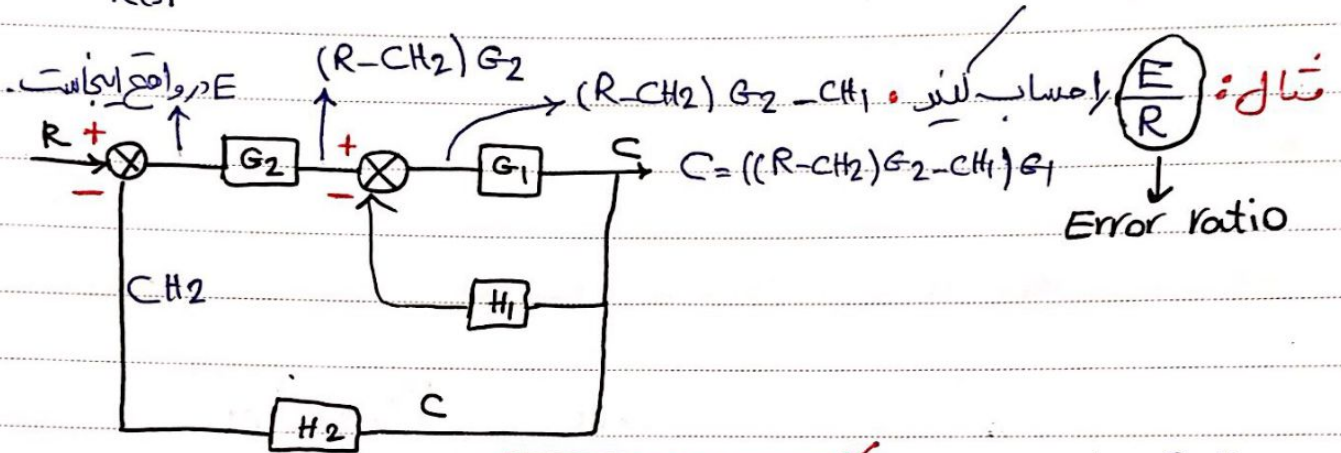 مثال: E/R را حساب کنید.
Error ratio
E در واقع اینجاست.
(R-CH2) G2
(R-CH2) G2 - CH1
R + −
G2
+ −
G1
C
C = ((R-CH2)G2-CH1)G1
CH2
H1
C
H2